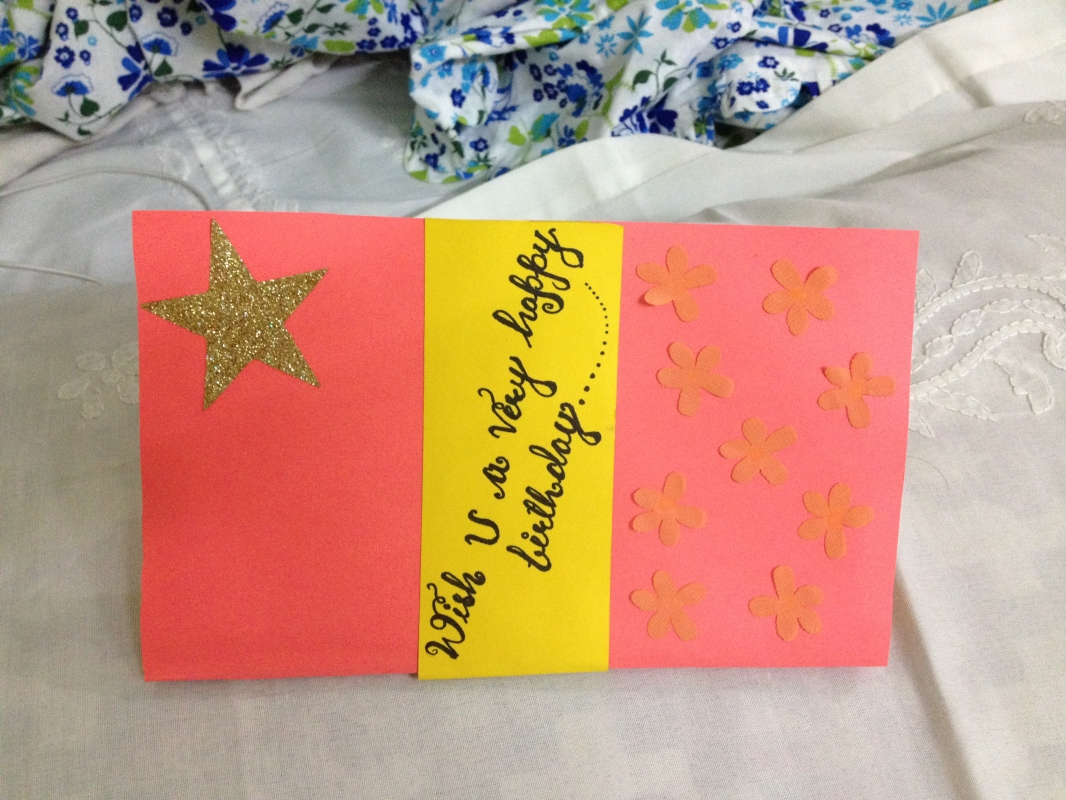 Wish U a very happy
birthday..............